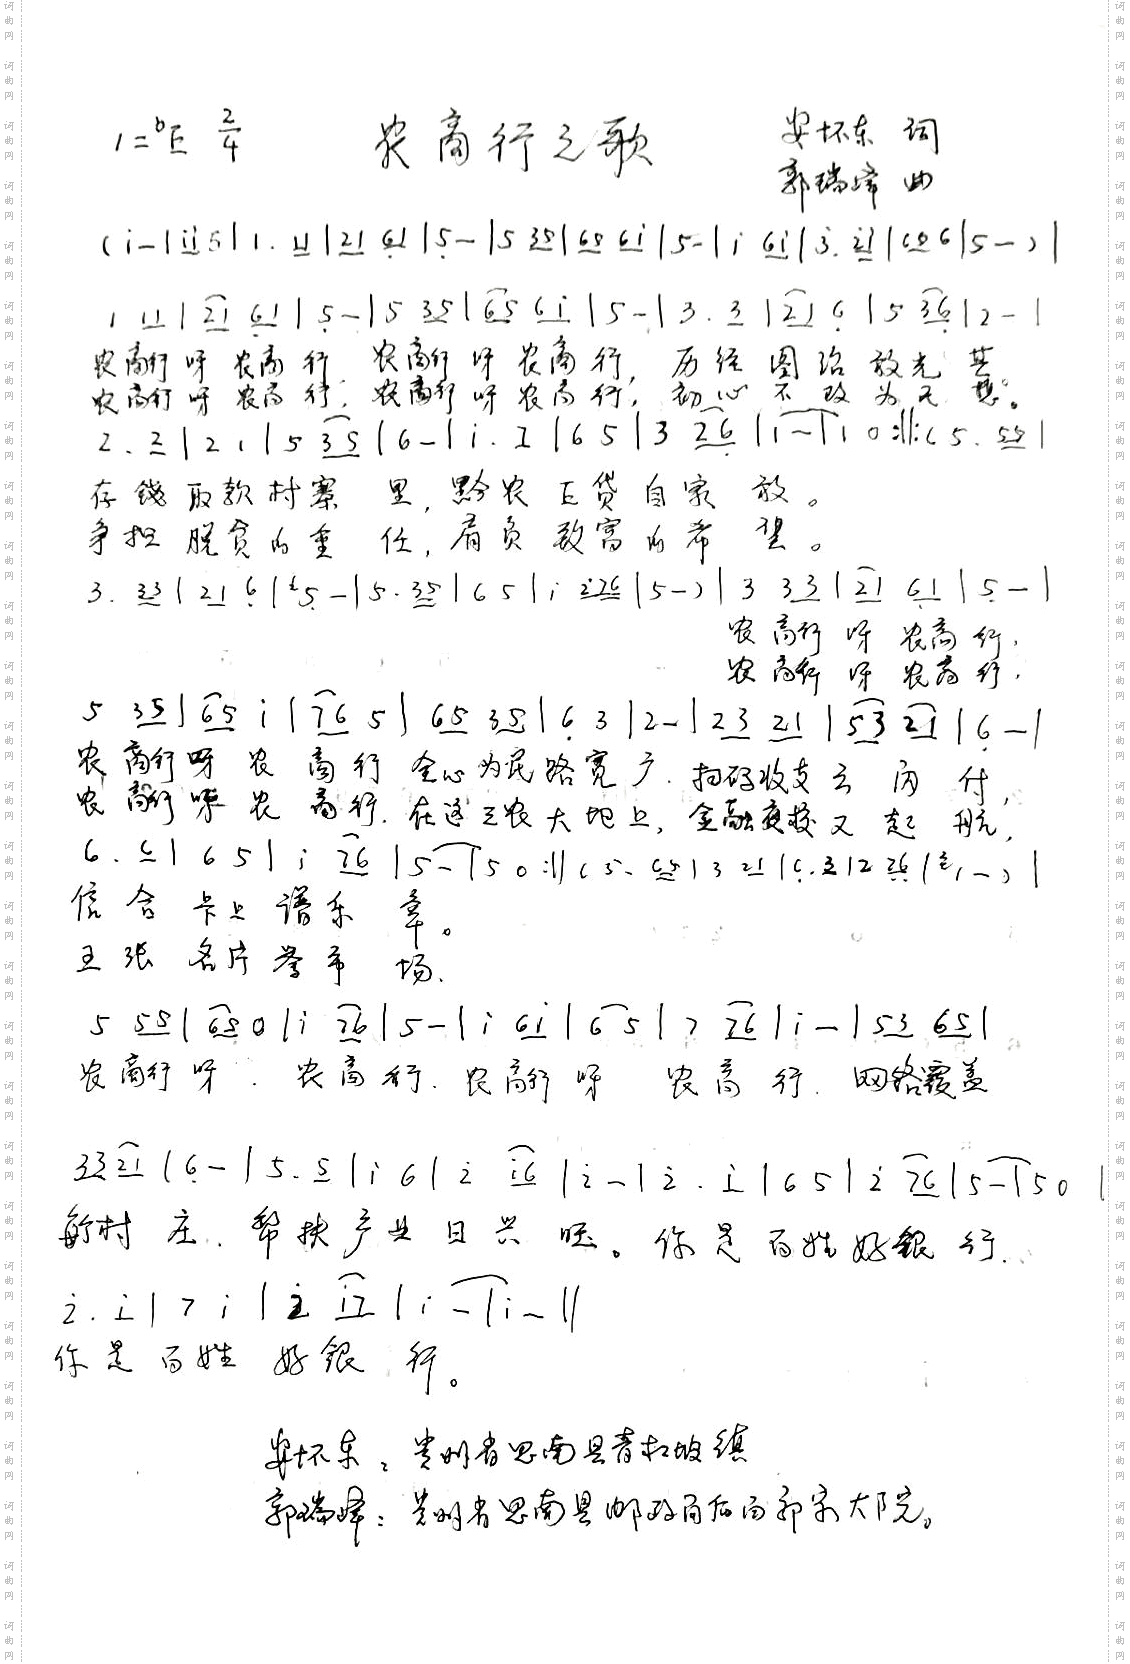 1=♭E 2/4 农商行之歌 安怀东 词
郭瑞峰 曲
(i - | i i 5 | 1. 11 | 21 61 | 5 - | 5 35 | 65 61 | 5 - | i 61 | 3. 21 | 65 6 | 5 - ) |
1 11 | 21 61 | 5 - | 5 35 | 65 6i | 5 - | 3. 3 | 21 6 | 5 36 | 2 - |
农商行呀农商行,农商行呀农商行,历经图治放光芒
农商行呀农商行,农商行呀农商行,初心不改为民想。
2. 2 | 2 1 | 5 35 | 6 - | i. i | 6 5 | 3 26 | 1 - | 1 0 :||: ( 5. 55 |
存钱取款村寨里,黔农E贷自家放。
争担脱贫的重任,肩负致富的希望。
3. 33 | 21 6 | 5 - | 5. 35 | 6 5 | i 276 | 5 - ) | 3 33 | 21 61 | 5 - |
农商行呀农商行,
农商行呀农商行,
5 35 | 65 i | 76 5 | 65 35 | 6 3 | 2 - | 23 21 | 53 21 | 6 - |
农商行呀农商行 全心为民路宽广.扫码收支云闪付,
农商行呀农商行.在这三农大地上,金融夜校又起航,
6. 6 | 6 5 | i 76 | 5 - | 5 0 :|| ( 5. 65 | 3 21 | 6. 3 | 2 26 | 1 - ) |
信合卡上谱乐章。
五张名片誉市场.
5 55 | 65 0 | i 76 | 5 - | i 6i | 6 5 | 7 76 | i - | 53 65 |
农商行呀.农商行.农商行呀 农商行.网络覆盖
33 21 | 6 - | 5. 5 | i 6 | 2 i6 | 2 - | 2. i | 6 5 | 2 76 | 5 - | 5 0 |
每村庄.帮扶产业日兴旺。你是百姓好银行.
2. i | 7 i | 2 i7 | i - | i - ||
你是百姓好银行。
安怀东:贵州省思南县青杠坡镇
郭瑞峰:贵州省思南县邮政局后面郭家大院。
词曲网